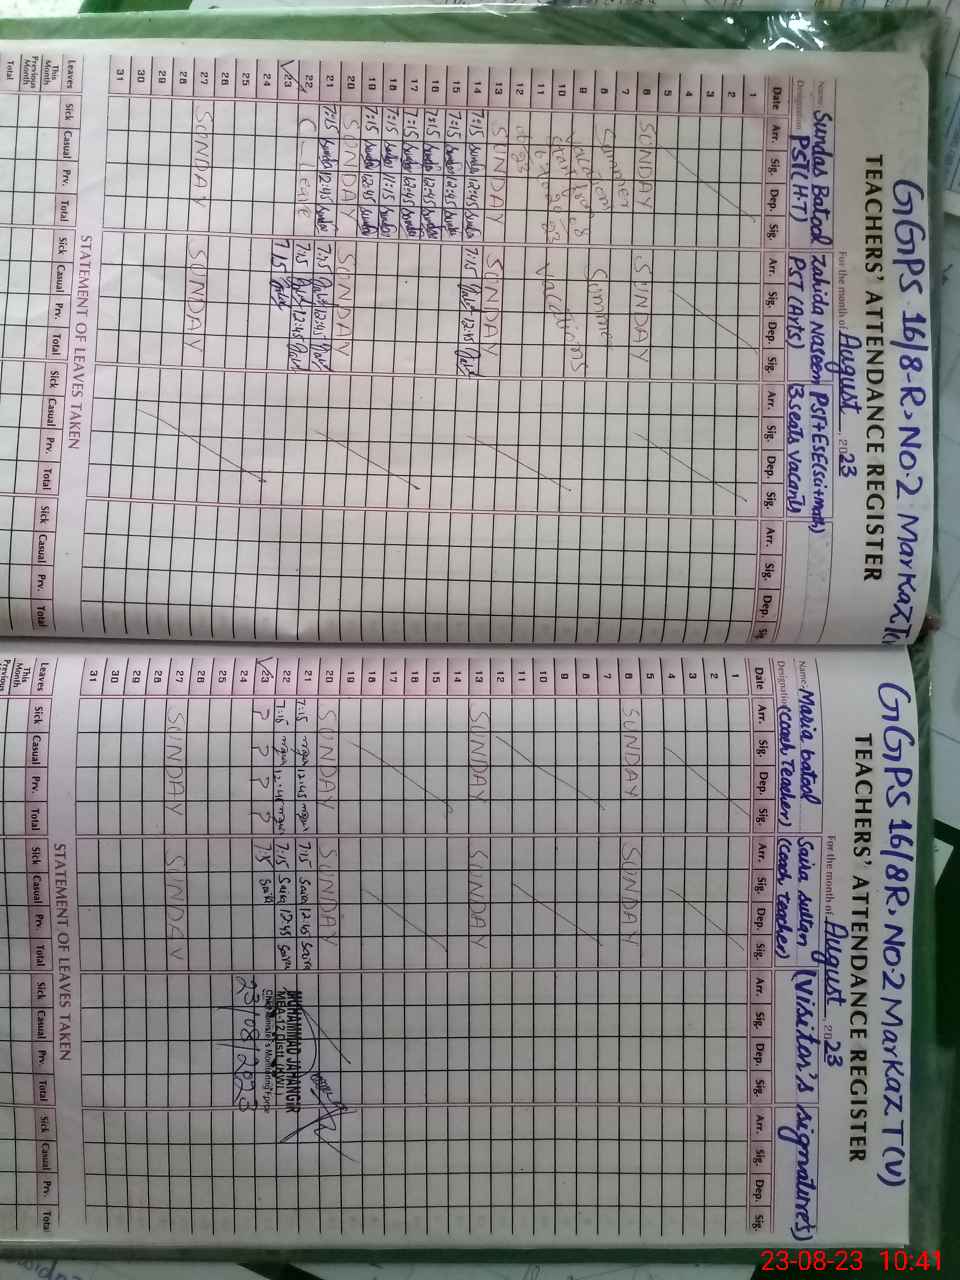 GGPS 16/8-R. NO.2 Markaz T(V)
TEACHERS' ATTENDANCE REGISTER
For the month of August 2023
Name Sundas Batool Zahida Naseem PST+ESE(sci+math)
Designation PST(H.T) PST (Arts) 3 seats vacants
Date Arr. Sig. Dep. Sig. Arr. Sig. Dep. Sig. Arr. Sig. Dep. Sig. Arr. Sig. Dep. Sig
1
2
3
4
5
6 SUNDAY SUNDAY
7
8 Summer Summer
9 Vacations
10 Vacations
11
12
13 SUNDAY SUNDAY
14 7:15 Sundas 12:45 Sundas 7:15 12:45
15 7:15 Sundas 12:45 Sundas
16 7:15 Sundas 12:45 Sundas
17 7:15 Sundas 12:45 Sundas
18 7:15 Sundas 11:15 Sundas
19 7:15 Sundas 12:45 Sundas
20 SUNDAY SUNDAY
21 7:15 Sundas 12:45 Sundas 7:15 12:45
22 C_Leave 7:15 12:45
23 7:15
24
25
26
27 SUNDAY SUNDAY
28
29
30
31
STATEMENT OF LEAVES TAKEN
Leaves Sick Casual Prv. Total Sick Casual Prv. Total Sick Casual Prv. Total Sick Casual Prv. Total
This Month
Previous Month
Total
GGPS 16/8R. NO.2 Markaz T(V)
TEACHERS' ATTENDANCE REGISTER
For the month of August 2023
Name Maria batool Saira sultan (Visitor's signatures)
Designation (Coach Teacher) (Coach teacher)
Date Arr. Sig. Dep. Sig. Arr. Sig. Dep. Sig. Arr. Sig. Dep. Sig. Arr. Sig. Dep. Sig.
1
2
3
4
5
6 SUNDAY SUNDAY
7
8
9
10
11
12
13 SUNDAY SUNDAY
14
15
16
17
18
19
20 SUNDAY SUNDAY
21 7:15 12:45 7:15 Saira 12:45 Saira
22 7:15 12:45 7:15 Saira 12:45 Saira
23 P P P P 7:15 Saira
MUHAMMAD JAHANGIR
MEA-12 Distt.
Chief Minister's Monitoring Force
23/08/2023
24
25
26
27 SUNDAY SUNDAY
28
29
30
31
STATEMENT OF LEAVES TAKEN
Leaves Sick Casual Prv. Total Sick Casual Prv. Total Sick Casual Prv. Total Sick Casual Prv. Total
This Month
Previous
23-08-23 10:41